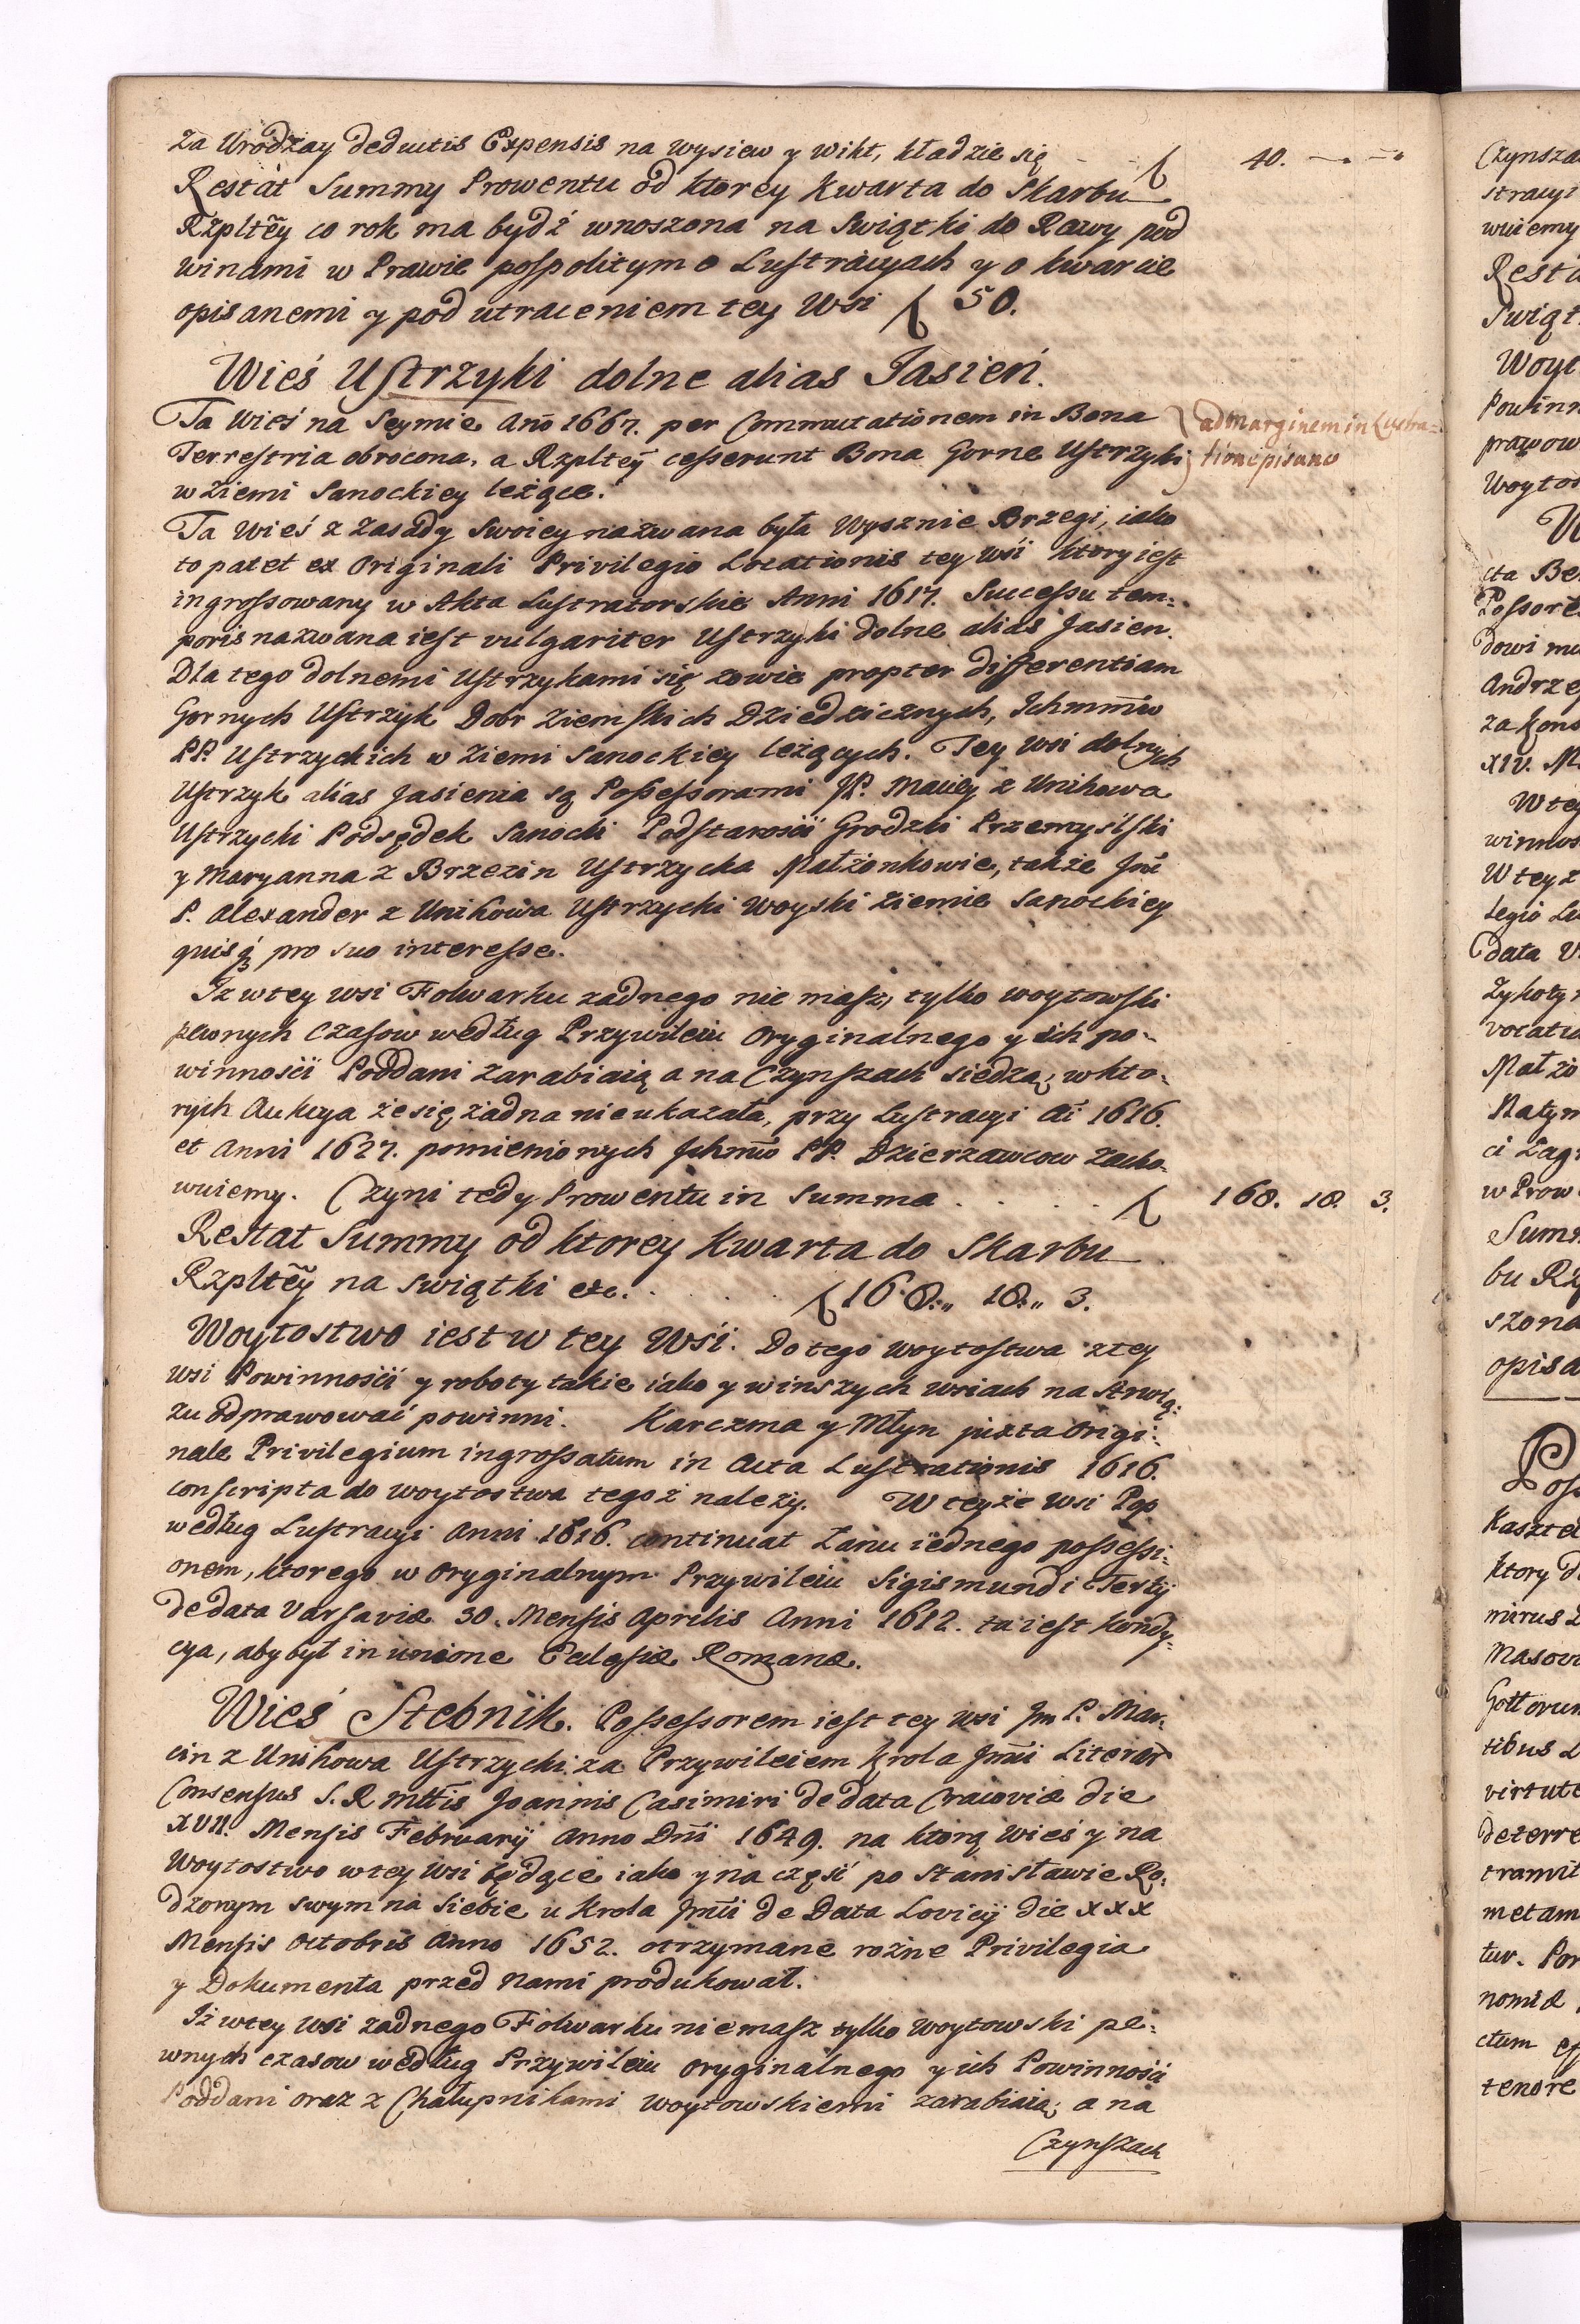 za Urodzay deductis Expensis na wysiew y wikt, kładzie się - - ƒ 40. — —
Restat Summy Prowentu od ktorey Kwarta do Skarbu
Rzpltey co rok ma bydź wnoszona na Swiątki do Rawy pod
winami w Prawie pospolitym o Lustracyach y o kwarcie
opisanemi y pod utraceniem tey Wsi ƒ 50.
Wieś Ustrzyki dolne alias Jasień.
Ta Wieś na Seymie Año 1667. per Commutationem in Bona
ad marginem in Lustra=
Terrestria obrocona, a Rzpltey cesserunt Bona Gorne Ustrzyki
tione pisano
w Ziemi Sanockiey leżące.
Ta Wieś z Zasady Swoiey nazwana była Wysznie Brzegi, iako
to patet ex Originali Privilegio Locationis tey wsi ktory iest
ingrossowany w Akta Lustratorskie Anni 1617. Successu tem=
poris nazwana iest vulgariter Ustrzyki dolne alias Jasien.
Dla tego dolnemi Ustrzykami się zowie propter differentiam
Gornych Ustrzyk Dobr Ziemskich Dziedzicznych, Ichmmw
PP. Ustrzyckich w Ziemi Sanockiey leżących. Tey wsi dolnych
Ustrzyk alias Jasienia są Possessorami JP. Maciey z Unihowa
Ustrzycki Podsędek Sanocki Podstarości Grodzki Przemyślski
y Maryanna z Brzezin Ustrzycka Małżonkowie, także Jmć
P. Alexander z Unihowa Ustrzycki Woyski Ziemie Sanockiey
quisq3 pro suo interesse.
Iz w tey wsi Folwarku zadnego nie masz, tylko woytowski
pewnych czasow według Przywileiu Oryginalnego y ich po=
winności Poddani zarabiaią a na Czynszach siedzą, w kto=
rych Aukcya że się żadna nie ukazała, przy Lustracyi Ai 1616.
et Anni 1627. pomienionych Jchmw PP. Dzierzawcow zacho=
wuiemy. Czyni tedy Prowentu in Summa . . . . ƒ 168. 18. 3.
Restat Summy od ktorey Kwarta do Skarbu
Rzpltey na swiątki etc. . . . . ƒ 168.,, 18.,, 3.
Woytostwo iest w tey Wsi. Do tego woytostwa z tey
wsi Powinności y roboty takie iako y winszych wsiach na Strwią=
zu odprawować powinni. Karczma y Młyn juxta Origi=
nale Privilegium ingrossatum in Acta Lustrationis 1616.
conscripta do woytostwa tegoż należy. W teyże wsi Pop
według Lustracyi Anni 1616. continuat Łanu iednego possessi=
onem, ktorego w Oryginalnym Przywileiu Sigismundi Tertij
de data Varsaviæ 30. Mensis Aprilis Anni 1612. ta iest kondy=
cya, aby był in unione Eclesiæ Romanæ.
Wieś Stebnik. Possessorem iest tey wsi Jm P. Mar=
cin z Unihowa Ustrzycki za Przywileiem Krola Jmci Literar
Consensus S. R Mttis Joannis Casimiri de data Cracoviæ die
XVII. Mensis Februarij Anno Dni 1649. na ktorą wieś y na
Woytostwo w tey wsi będące iako y na część po Stanisławie Ro=
dzonym swym na siebie u Krola Jmci de Data Lovicij die XXX
Mensis Octobris Anno 1652. otrzymane rożne Privilegia
y Dokumenta przed nami produkował.
Iż w tey wsi zadnego Folwarku nie masz tylko Woytowski pe=
wnych czasow według Przywileiu oryginalnego y ich Powinności
Poddani oraz z Chałupnikami woytowskiemi zarabiaią, a na
Czynszach